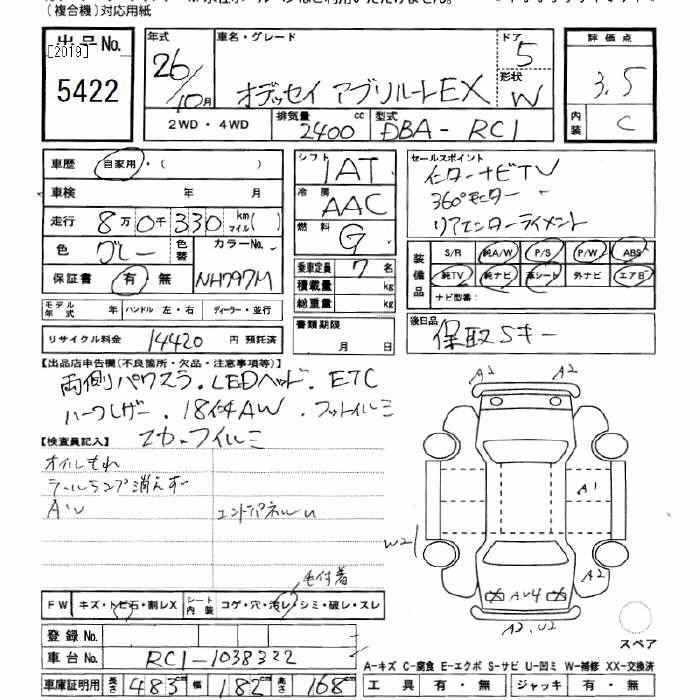 (複合機)対応用紙
出品No.
[2019]
5422
年式 26/10月
車名・グレード
オデッセイ アブソルートEX
ドア 5
形状 W
2WD・4WD
排気量 2400 cc
型式 DBA-RC1
評価点
3.5
内装 C
車歴 自家用・( )
車検 年 月
走行 8万0千330 km マイル( )
色 グレー 色替 カラーNo.
保証書 有 無 NH797M
モデル年式 年 ハンドル 左・右 ディーラー・並行
リサイクル料金 14420 円 預託済
シフト IAT
冷房 AAC
燃料 G
乗車定員 7 名
積載量 kg
総重量 kg
書類期限
月 日
セールスポイント
インターナビTV
360°モニター
リアエンターテイメント
装備品
S/R 純A/W P/S P/W ABS
純TV 純ナビ 革シート 外ナビ エアB
ナビ型番:
後日品
保取Sキー
【出品店申告欄(不良箇所・欠品・注意事項等)】
両側パワスラ.LEDヘッド.ETC
ハーフレザー.18インチAW.フットイルミ
【検査員記入】
オイルもれ
テールランプ消えず
AU
エンドパネルU
毛付着
FW キズ・トビ石・割レX シート内装 コゲ・穴・汚レ・シミ・破レ・スレ
登録No.
車台No. RC1-1038322
車庫証明用 長さ 483cm 幅 182cm 高さ 168cm
A2
A2
A1
W2
A2
AU4
A2,U2
スペア
A-キズ C-腐食 E-エクボ S-サビ U-凹ミ W-補修 XX-交換済
工具 有・無 ジャッキ 有・無